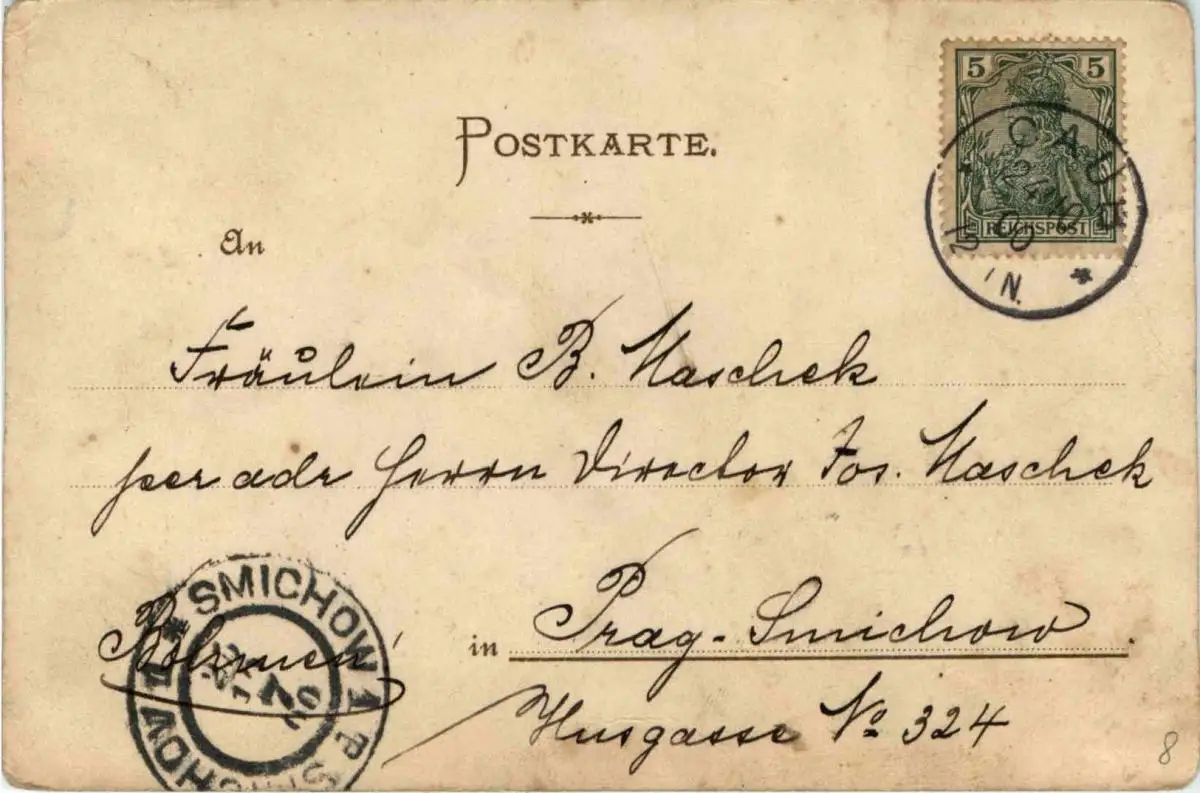 5 5
REICHSPOST
CAUB
24 10
00
12 N.
POSTKARTE.
An
Fräulein B. Maschek
per adr Herrn Director Jos. Maschek
in Prag-Smichow
Böhmen
Husgasse No 324
SMICHOW 1
8